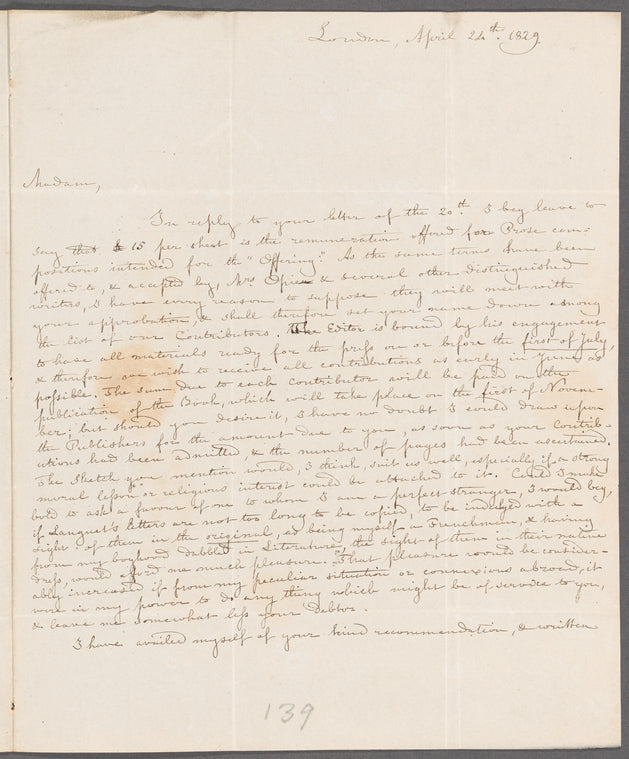 London, April 24th. 1829.
Madam,
In reply to your letter of the 20th. I beg leave to
say that £ 15 per sheet is the remuneration offered for Prose com-
positions intended for the "Offering." As the same terms have been
offered to, & accepted by, Mrs Opie & several other distinguished
writers, I have every reason to suppose they will meet with
your approbation, & shall therefore set your name down among
the list of our Contributors. The Editor is bound by his engagement
to have all materials ready for the press on or before the first of July,
& therefore we wish to receive all contributions as early in June as
possible. The sum due to each contributor will be paid on the
publication of the Book, which will take place on the first of Novem-
ber; but should you desire it, I have no doubt I could draw upon
the Publishers for the amount due to you, as soon as your Contrib-
utions had been admitted, & the number of pages had been ascertained.
The Sketch you mention would, I think, suit us well, especially if a strong
moral lesson or religious interest could be attached to it. Could I make
bold to ask a favour of one to whom I am a perfect stranger, I would beg,
if Languet's letters are not too long to be copied, to be indulged with a
sight of them in the original, as being myself a Frenchman, & having
from my boyhood dabbled in Literature, the sight of them in their native
dress, would afford me much pleasure. That pleasure would be consider-
ably increased if from my peculiar situation or connexions abroad, it
were in my power to do any thing which might be of service to you,
& leave me somewhat less your debtor.
I have availed myself of your kind recommendation, & written
139